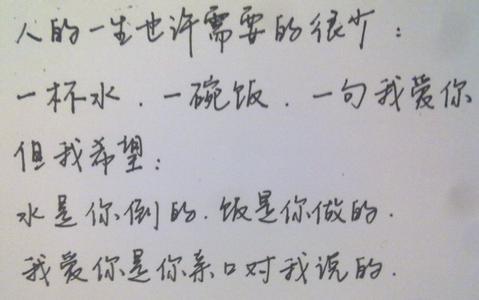 人的一生也许需要的很少：
一杯水．一碗饭．一句我爱你
但我希望：
水是你倒的．饭是你做的．
我爱你是你亲口对我说的．